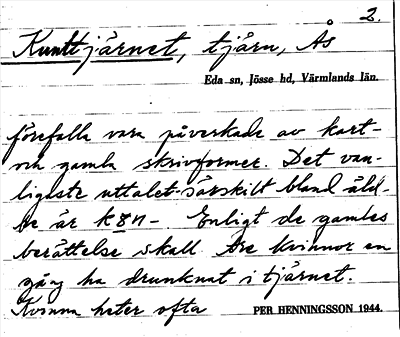 2.
Kunttjärnet, tjärn, Ås
Eda sn, Jösse hd, Värmlands län.
förefalla vara påverkade av kart-
och gamla skrivformer. Det van-
ligaste uttalet särskilt bland äld-
re är Enligt de gamles
berättelse skall tre kvinnor en
gång ha drunknat i tjärnet.
Kvinna heter ofta
PER HENNINGSSON 1944.